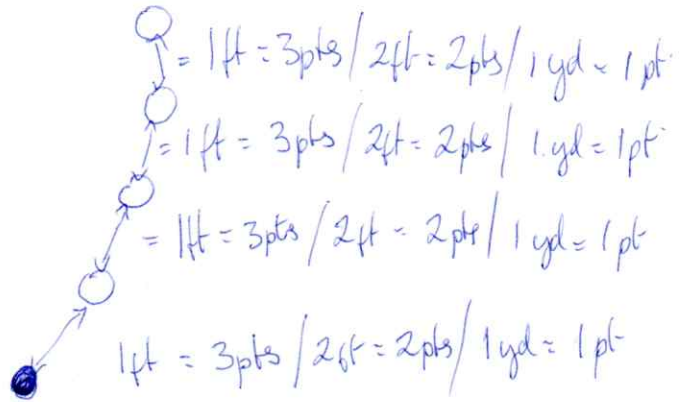 = 1ft = 3pts / 2ft = 2pts / 1 yd = 1 pt
= 1ft = 3pts / 2ft = 2pts / 1 yd = 1pt
= 1ft = 3pts / 2ft = 2pts / 1 yd = 1 pt
1ft = 3pts / 2ft = 2pts / 1 yd = 1 pt